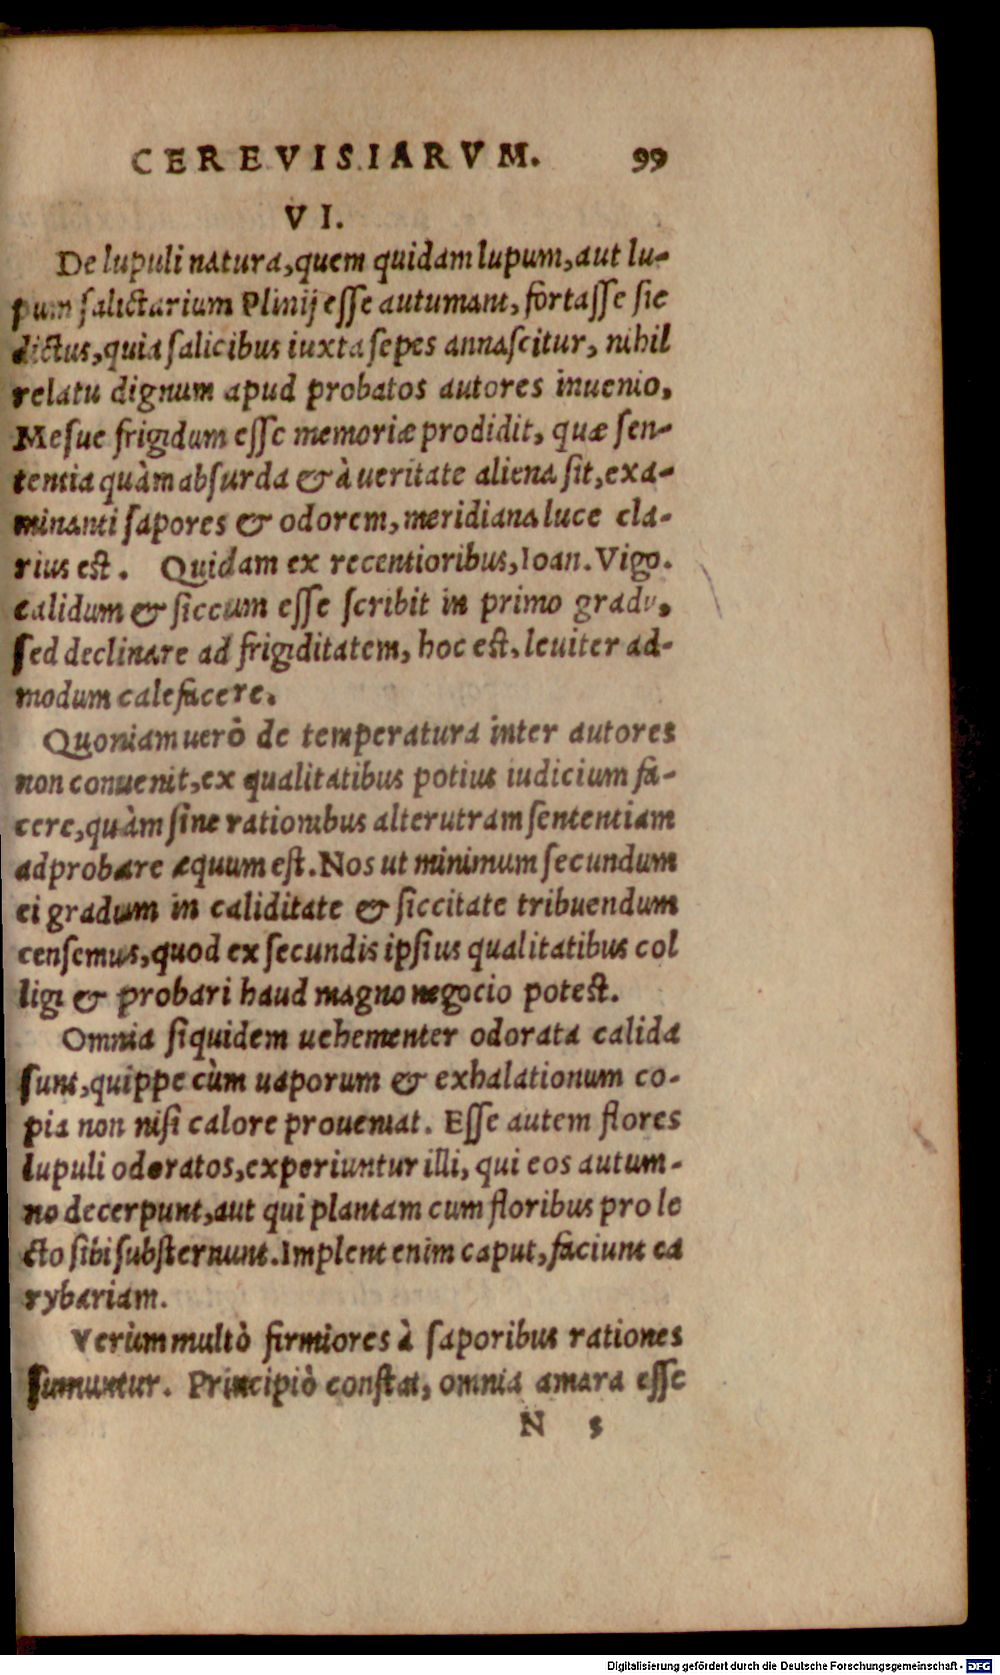 CEREVISIARVM. 99
VI.
De lupuli natura, quem quidam lupum, aut lu-
pum salictarium Plinij esse autumant, fortasse sic
dictus, quia salicibus iuxta sepes annascitur, nihil
relatu dignum apud probatos autores inuenio,
Mesue frigidum esse memoriæ prodidit, quæ sen-
tentia quàm absurda & à ueritate aliena sit, exa-
minanti sapores & odorem, meridiana luce cla-
rius est. Quidam ex recentioribus, Ioan. Vigo.
calidum & siccum esse scribit in primo gradu,
sed declinare ad frigiditatem, hoc est, leuiter ad-
modum calefacere.
Quoniam uerò de temperatura inter autores
non conuenit, ex qualitatibus potius iudicium fa-
cere, quàm sine rationibus alterutram sententiam
adprobare æquum est. Nos ut minimum secundum
ei gradum in caliditate & siccitate tribuendum
censemus, quod ex secundis ipsius qualitatibus col
ligi & probari haud magno negocio potest.
Omnia siquidem uehementer odorata calida
sunt, quippe cùm uaporum & exhalationum co-
pia non nisi calore proueniat. Esse autem flores
lupuli odoratos, experiuntur illi, qui eos autum-
no decerpunt, aut qui plantam cum floribus pro le
cto sibi substernunt. Implent enim caput, faciunt ca
rybariam.
Verùm multò firmiores à saporibus rationes
sumuntur. Principiò constat, omnia amara esse
N 5
Digitalisierung gefördert durch die Deutsche Forschungsgemeinschaft - DFG